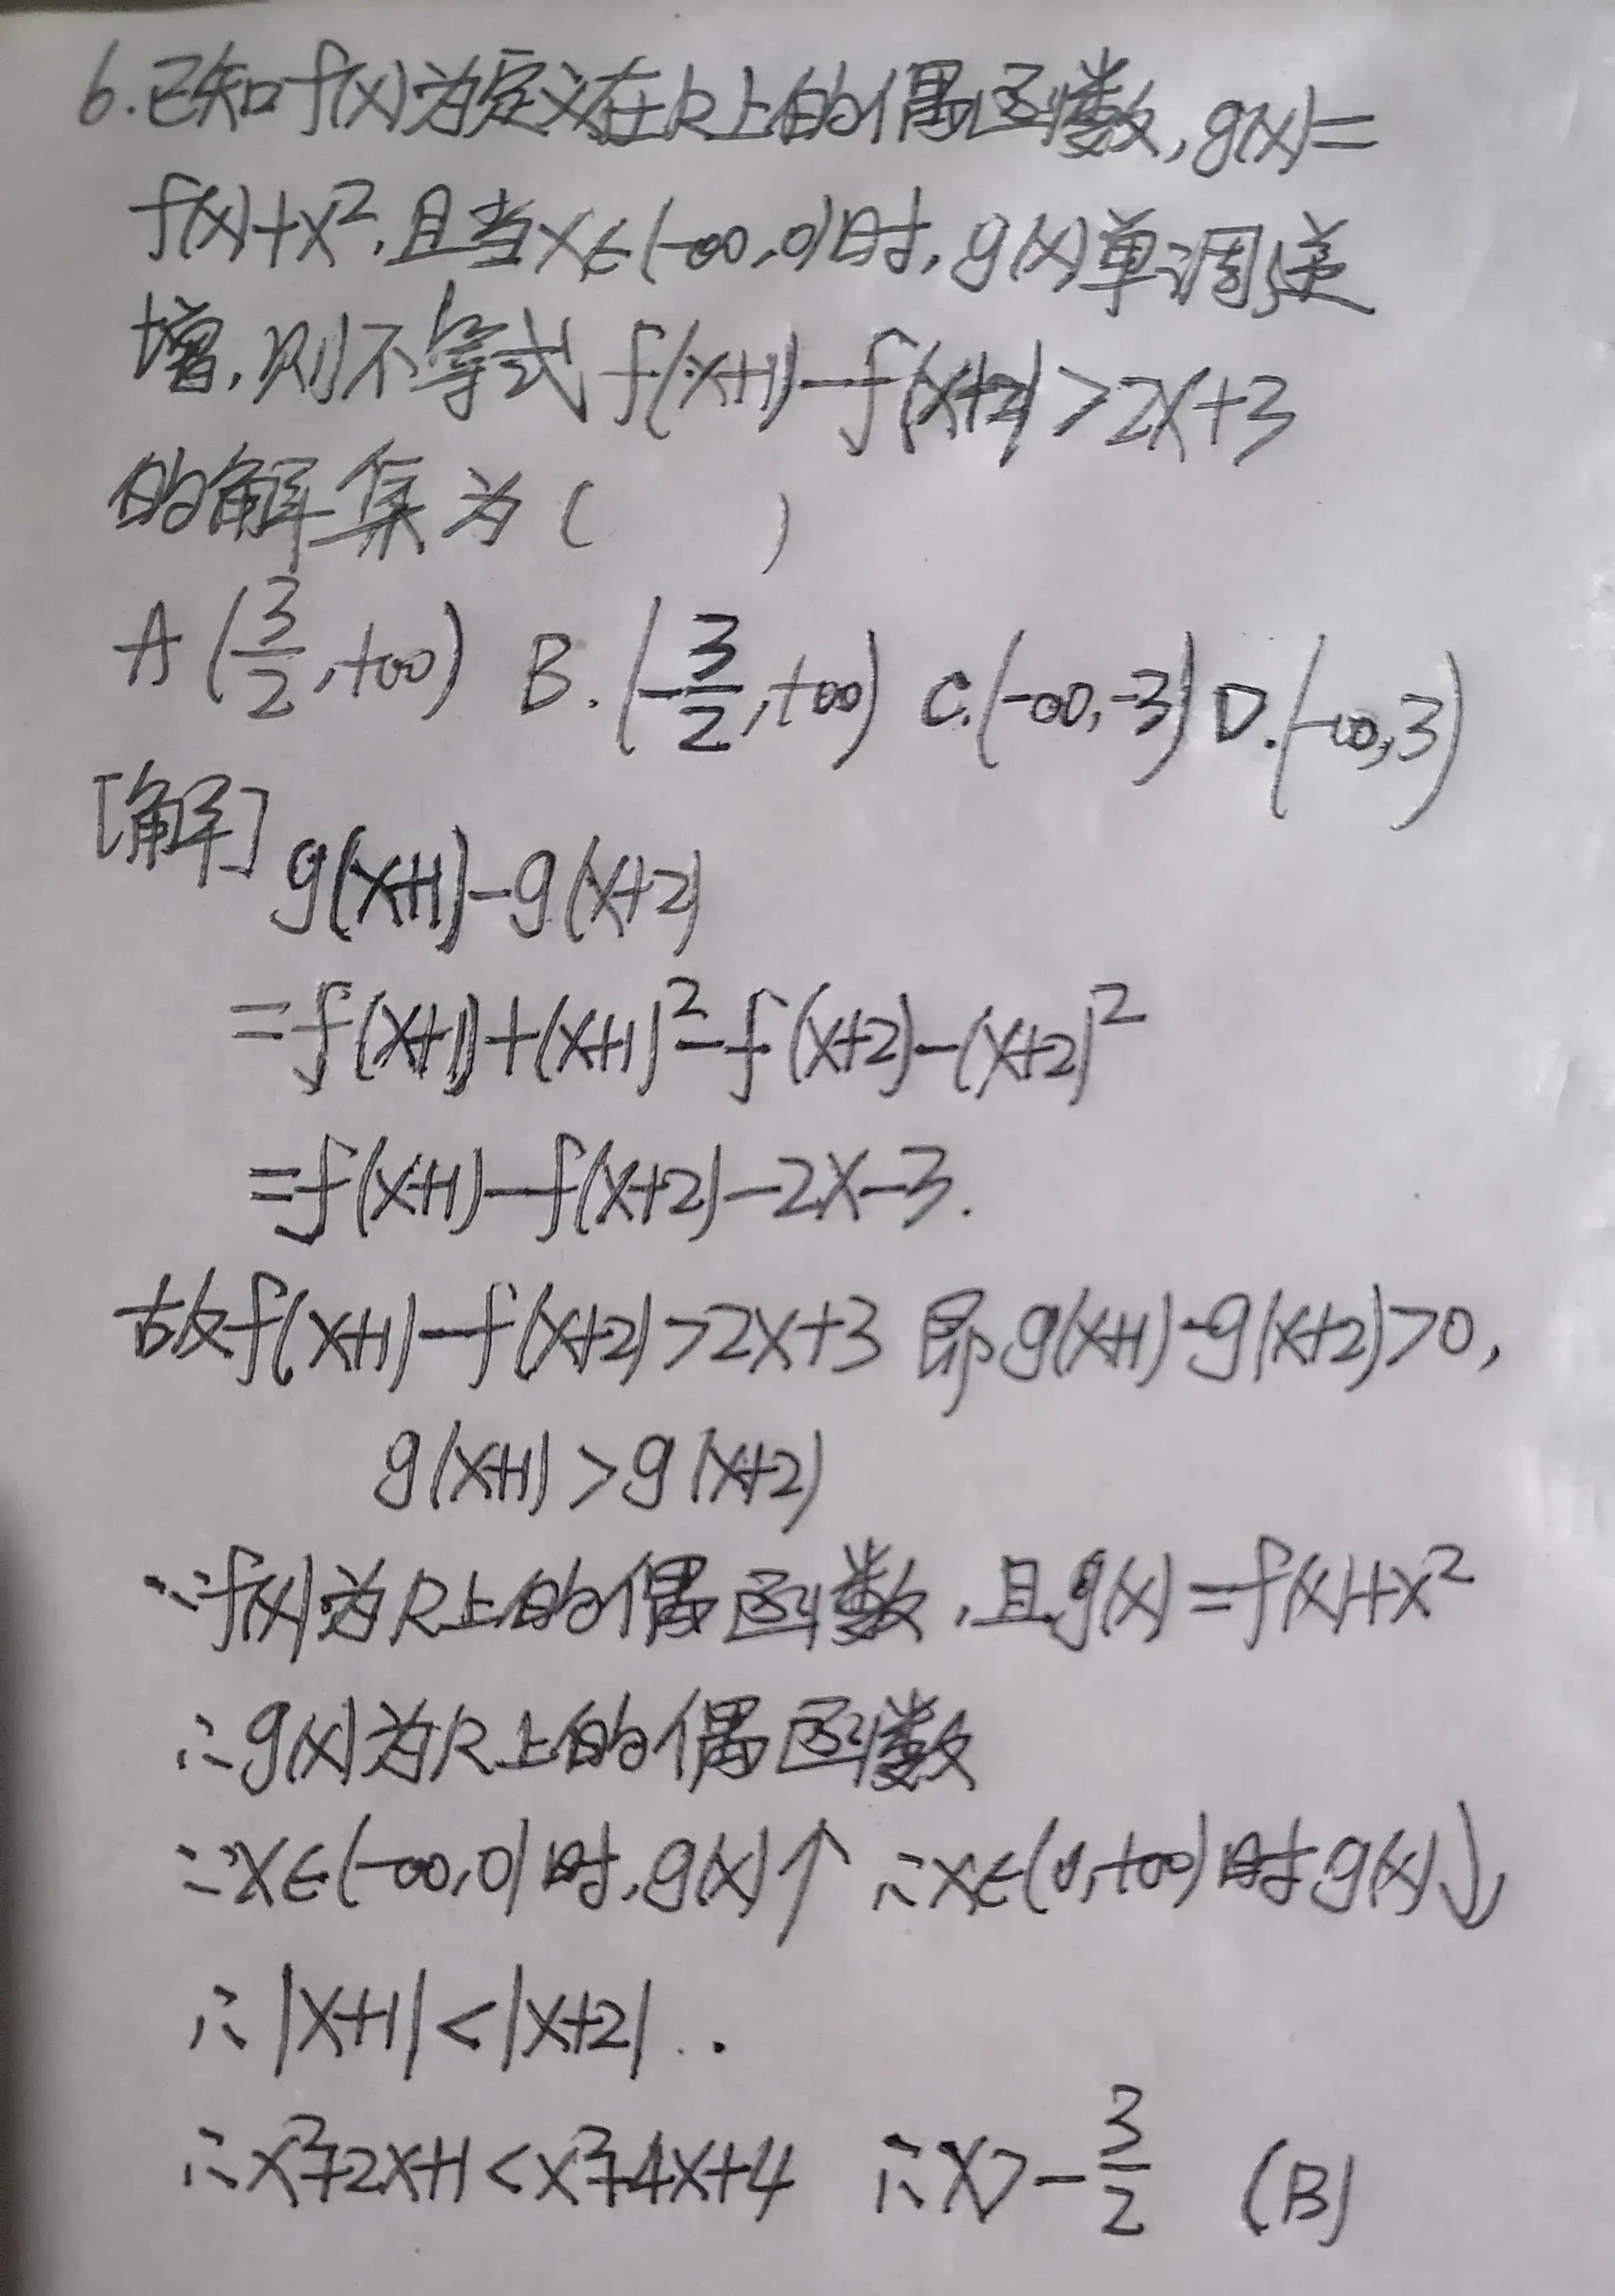 6.已知f(x)为定义在R上的偶函数,g(x)=
f(x)+x²,且当x∈(-∞,0)时,g(x)单调递
增,则不等式f(x+1)-f(x+2)>2x+3
的解集为( )
A(3/2,+∞) B.(-3/2,+∞) C.(-∞,-3) D.(-∞,3)
[解] g(x+1)-g(x+2)
=f(x+1)+(x+1)²-f(x+2)-(x+2)²
=f(x+1)-f(x+2)-2x-3.
故f(x+1)-f(x+2)>2x+3 即g(x+1)-g(x+2)>0,
g(x+1)>g(x+2)
∵f(x)为R上的偶函数,且g(x)=f(x)+x²
∴g(x)为R上的偶函数
∵x∈(-∞,0)时,g(x)↑ ∴x∈(0,+∞)时g(x)↓
∴|x+1|<|x+2|..
∴x²+2x+1<x²+4x+4 ∴x>-3/2 (B)